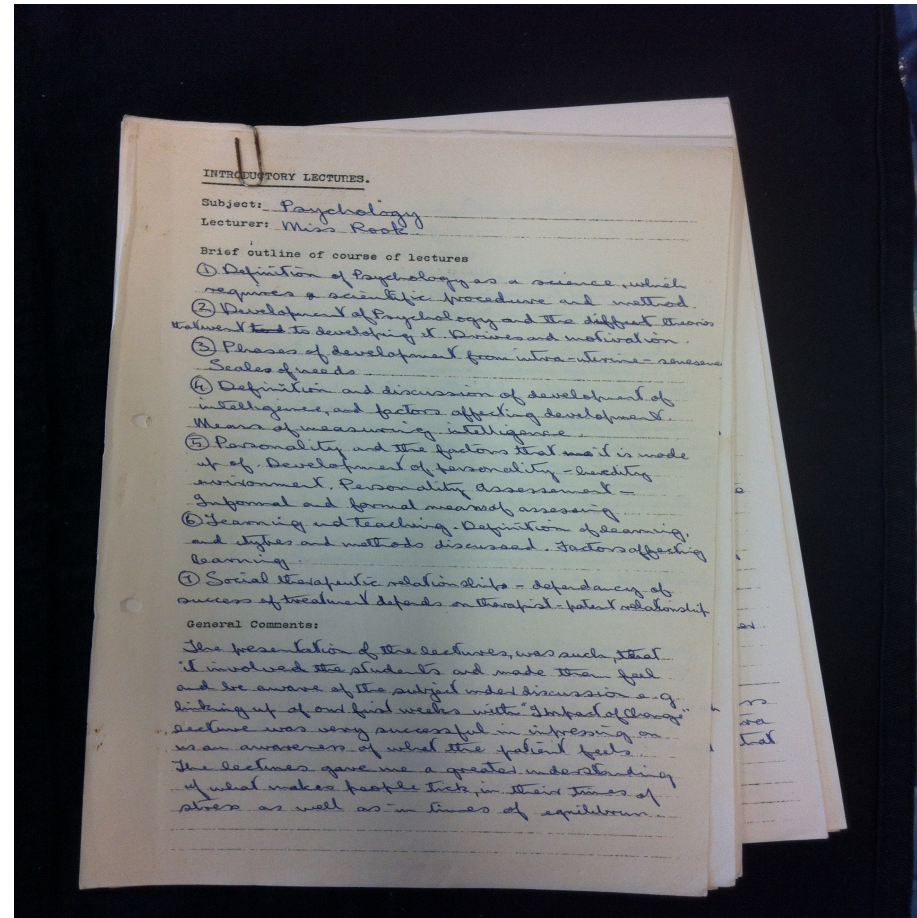 INTRODUCTORY LECTURES.
Subject: Psychology
Lecturer: Miss Rook
Brief outline of course of lectures
① Definition of Psychology as a science, which
requires a scientific procedure and method.
② Development of Psychology and the diffect theories
that went to developing it. Drives and motivation.
③ Phrases of development from intra-uterine - senesence
Scales of needs
④ Definition and discussion of development of
intelligence, and factors affecting development.
Means of measuring intelligence.
⑤ Personality and the factors that it is made
up of. Development of personality - heredity
environment. Personality assessement -
Informal and formal means of assessing
⑥ Learning and teaching. Definition of learning,
and types and methods discussed. Factors affecting
learning.
⑦ Social therapeutic relationships - dependancy of
success of treatment depends on therapist-patent relationship
General Comments:
The presentation of the lectures, was such, that
it involved the students and made them feel
and be aware of the subject under discussion e.g
linking up of our first weeks with "Impact of Change"
lecture was very successful in inpressing on
us an awareness of what the patient feels
The lectures gave me a greater understanding
of what makes people tick, in their times of
stress as well as in times of equilibrum.
that